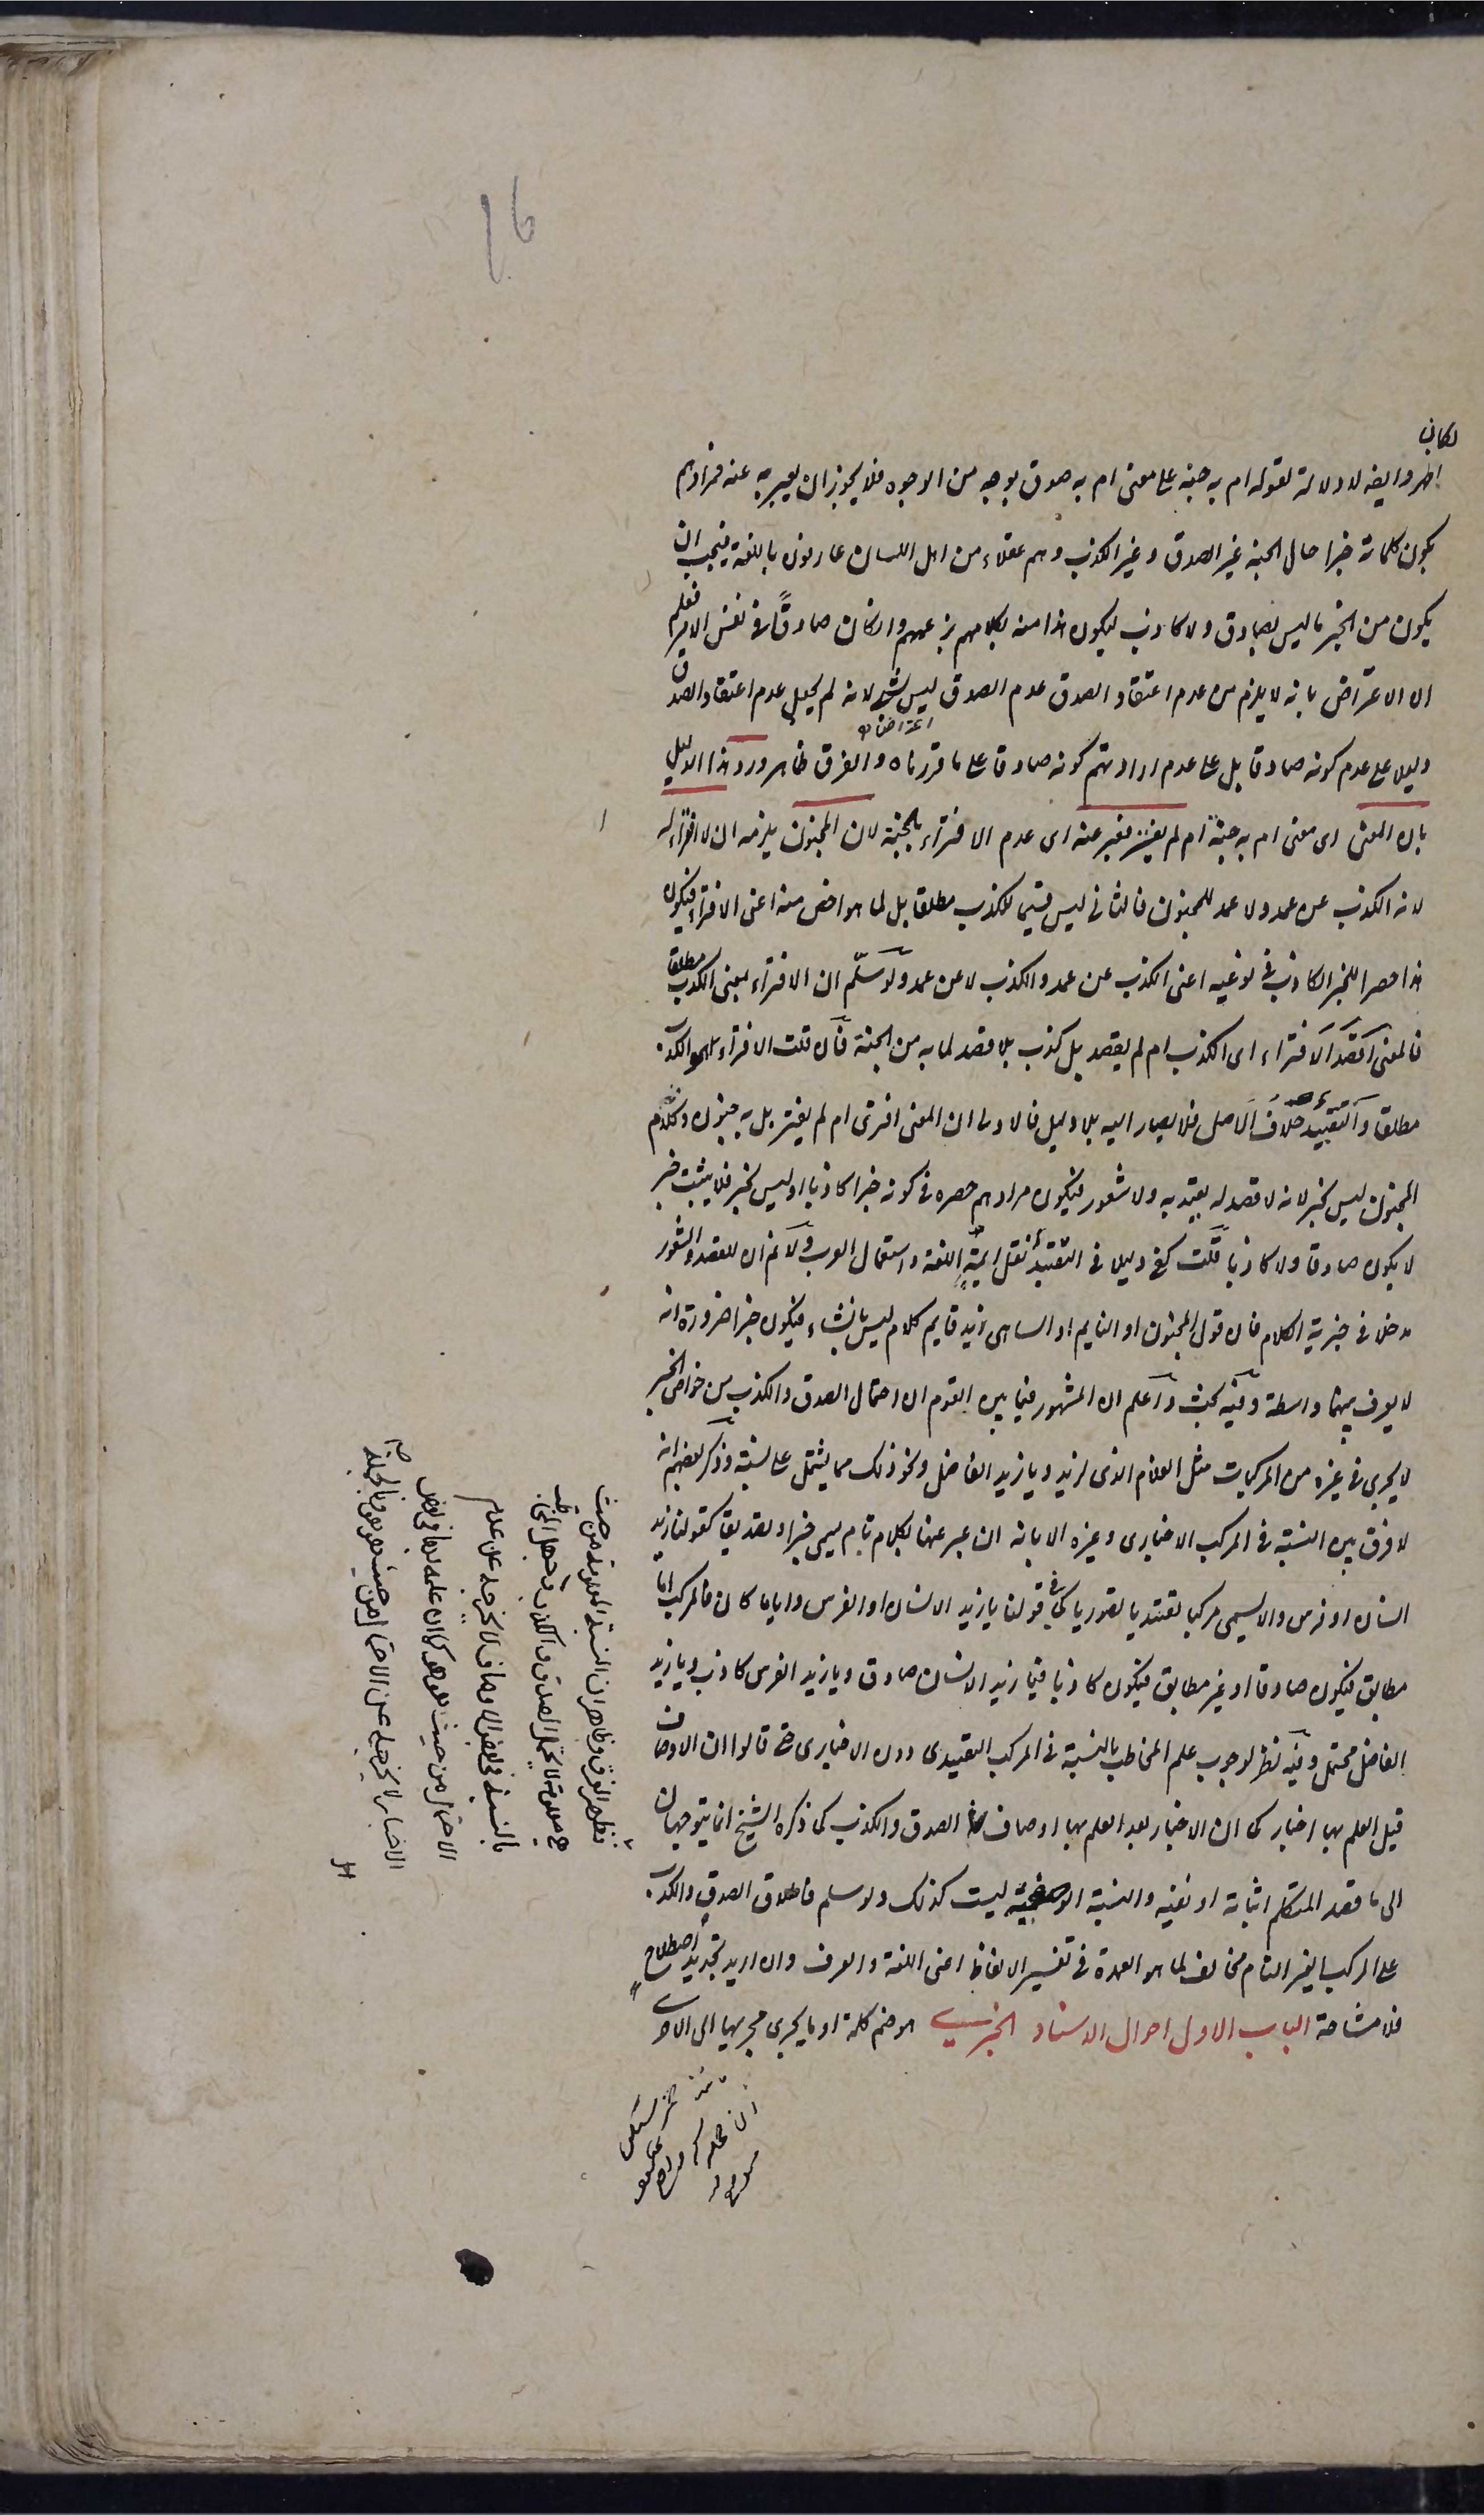 لكان
اظهر وايضا لا دلالة لقوله ام به جنة على معنى ام به صدق بوجه من الوجوه فلا يجوز ان يعبر به عنه فمرادهم
بكون كلامه خبرا حال الجنة غير الصدق وغير الكذب وهم عقلاء من اهل اللسان عارفون باللغة فيجب ان
يكون من الخبر ما ليس بصادق ولا كاذب ليكون هذا منه بكلامهم بزعمهم وان كان صادقا في نفس الامر فعلم
ان الاعتراض بانه لا يلزم من عدم اعتقاد الصدق عدم الصدق ليس بشئ لانه لم يجعل عدم اعتقاد الصدق
دليلا على عدم كونه صادقا بل على عدم ارادتهم كونه صادقا على ما قررناه والفرق ظاهر ورد هذا الدليل
بان المعنى اى معنى ام به جنة ام لم يفتر فعبر عنه اى عدم الافتراء بالجنة لان المجنون يلزمه ان لا افتراء له
لانه الكذب عن عمد ولا عمد للمجنون فالثانى ليس قسيما للكذب مطلقا بل لما هو اخص منه اعنى الافتراء فيكون
هذا حصرا للخبر الكاذب فى نوعيه اعنى الكذب عن عمد والكذب لا عن عمد ولو سلم ان الافتراء بمعنى الكذب مطلقا
فالمعنى اقصد الافتراء اى الكذب ام لم يقصد بل كذب بلا قصد لما به من الجنة فان قلت الافتراء هو الكذب
مطلقا والتقييد خلاف الاصل فلا يصار اليه بلا دليل فالاولى ان المعنى افترى ام لم يفتر بل به جنون وكلام
المجنون ليس بخبر لانه لا قصد له يعتد به ولا شعور فيكون مرادهم حصره فى كونه خبرا كاذبا او ليس بخبر فلا يثبت خبر
لا يكون صادقا ولا كاذبا قلت كفى دليلا فى التقييد نقل ايمة اللغة واستعمال العرب ولا نم ان للقصد والشعور
مدخلا فى خبرية الكلام فان قول المجنون او النايم او الساهى زيد قايم كلام ليس بانشاء فيكون خبرا ضرورة انه
لا يعرف بينهما واسطة وفيه بحث واعلم ان المشهور فيما بين القوم ان احتمال الصدق والكذب من خواص الخبر
لا يجرى فى غيره من المركبات مثل الغلام الذى لزيد ويا زيد الفاضل ونحو ذلك مما يشتمل على نسبة وذكر بعضهم انه
لا فرق بين النسبة فى المركب الاخبارى وغيره الا بانه ان عبر عنها بكلام تام يسمى خبرا وتصديقا كقولنا زيد
انسان او فرس والا يسمى مركبا تقييديا تصوريا كما فى قولنا يا زيد الانسان او الفرس وايا ما كان فالمركب اما
مطابق فيكون صادقا او غير مطابق فيكون كاذبا فيا زيد الانسان صادق ويا زيد الفرس كاذب ويا زيد
الفاضل محتمل وفيه نظر لوجوب علم المخاطب بالنسبة فى المركب التقييدى دون الاخبارى حتى قالوا ان الاوصاف
قبل العلم بها اخبار كما ان الاخبار بعد العلم بها اوصاف الصدق والكذب كما ذكره الشيخ انما يتوجهان
الى ما قصد المتكلم اثباته او نفيه والنسبة الوصفية ليست كذلك ولو سلم فاطلاق الصدق والكذب
على المركب الغير التام مخالف لما هو العمدة فى تفسير الالفاظ اعنى اللغة والعرف وان اريد تجديد اصطلاح
فلا مشاحة الباب الاول احوال الاسناد الخبرى هو ضم كلمة او ما يجرى مجريها الى الاخرى
فظهر الفرق وظاهر ان النسبة المعلومة من حيث
هى معلومة لا تحتمل الصدق والكذب وجهل المخاطب
بالنسبة فى بعض الاوصاف لا يخرجه عن عدم
الاحتمال من حيث هو هو كما ان علمه بها فى بعض
الاخبار لا يخرجه عن الاحتمال من حيث هو هو وبالجملة